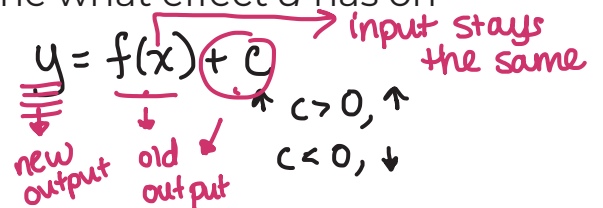 ne what effect a has on
input stays
the same
y = f(x) + c
c > 0, ↑
c < 0, ↓
new
output
old
output